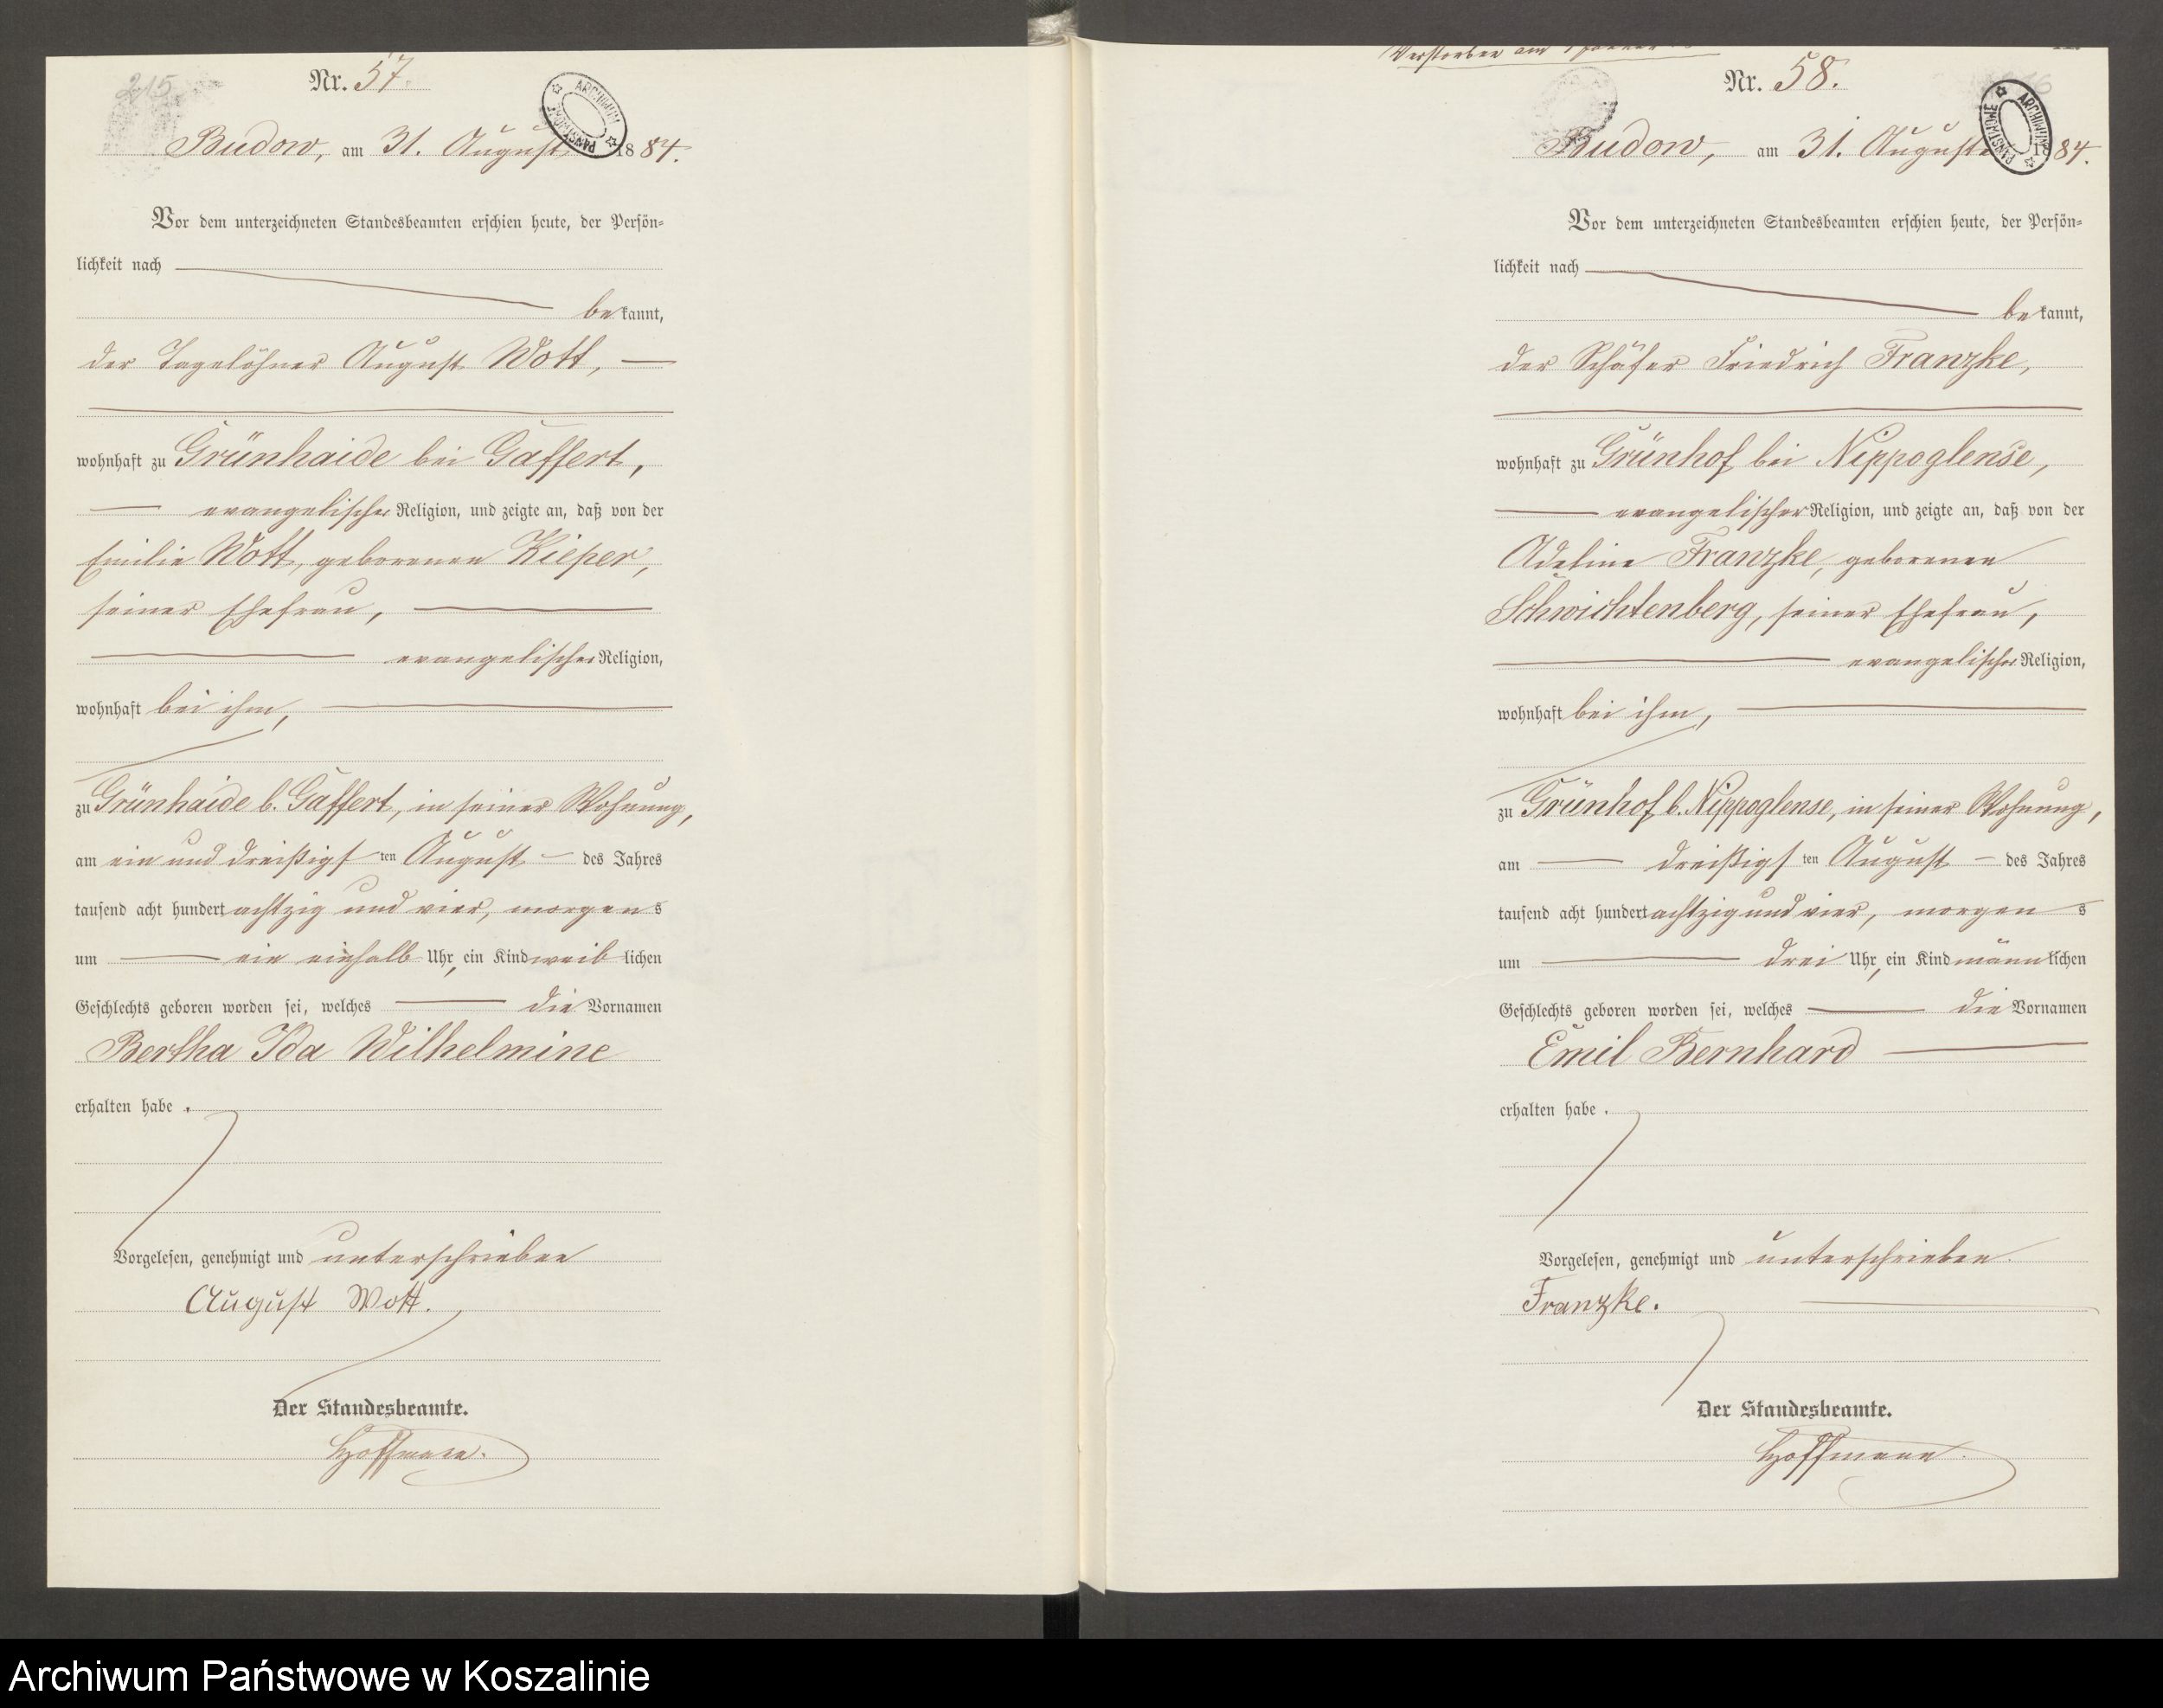 215
Nr. 57.
ARCHIWUM PAŃSTWOWE
Budow, am 31. August 1884.
Vor dem unterzeichneten Standesbeamten erschien heute, der Persön-
lichkeit nach
bekannt,
der Tagelöhner August Wott,
wohnhaft zu Grünhaide bei Gaffert,
evangelischer Religion, und zeigte an, daß von der
Emilie Wott, geborenen Kieper,
seiner Ehefrau,
evangelischer Religion,
wohnhaft bei ihm,
zu Grünhaide b. Gaffert, in seiner Wohnung,
am ein und dreißigsten August des Jahres
tausend acht hundert achtzig und vier, morgens
um ein einhalb Uhr, ein Kind weiblichen
Geschlechts geboren worden sei, welches die Vornamen
Bertha Ida Wilhelmine
erhalten habe.
Vorgelesen, genehmigt und unterschrieben
August Wott.
Der Standesbeamte.
Hoffmann.
Verstorben am
Nr. 58.
ARCHIWUM PAŃSTWOWE
Budow, am 31. August 1884.
Vor dem unterzeichneten Standesbeamten erschien heute, der Persön-
lichkeit nach
bekannt,
der Schäfer Friedrich Franzke,
wohnhaft zu Grünhof bei Nippoglense,
evangelischer Religion, und zeigte an, daß von der
Adeline Franzke, geborenen
Schwichtenberg, seiner Ehefrau,
evangelischer Religion,
wohnhaft bei ihm,
zu Grünhof b. Nippoglense, in seiner Wohnung,
am dreißigsten August des Jahres
tausend acht hundert achtzig und vier, morgens
um drei Uhr, ein Kind männlichen
Geschlechts geboren worden sei, welches die Vornamen
Emil Bernhard
erhalten habe.
Vorgelesen, genehmigt und unterschrieben.
Franzke.
Der Standesbeamte.
Hoffmann.
Archiwum Państwowe w Koszalinie